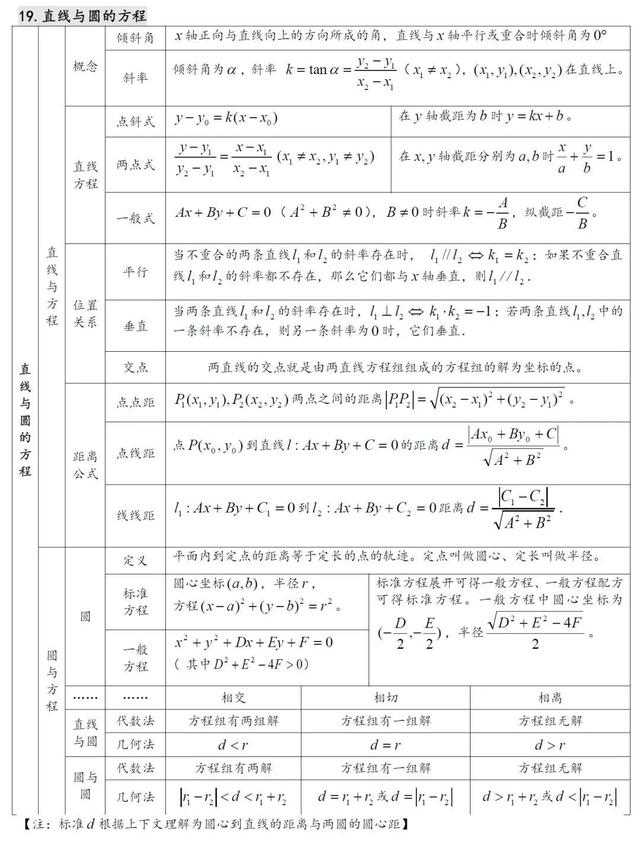 19.直线与圆的方程
直线与圆的方程
直线与方程
概念
倾斜角
x 轴正向与直线向上的方向所成的角，直线与 x 轴平行或重合时倾斜角为 0°
斜率
倾斜角为 α，斜率 k = tan α = (y₂ − y₁)/(x₂ − x₁)（x₁ ≠ x₂），(x₁, y₁),(x₂, y₂) 在直线上。
直线方程
点斜式
y − y₀ = k(x − x₀)
在 y 轴截距为 b 时 y = kx + b。
两点式
(y − y₁)/(y₂ − y₁) = (x − x₁)/(x₂ − x₁) (x₁ ≠ x₂, y₁ ≠ y₂)
在 x, y 轴截距分别为 a, b 时 x/a + y/b = 1。
一般式
Ax + By + C = 0（A² + B² ≠ 0），B ≠ 0 时斜率 k = −A/B，纵截距 −C/B。
位置关系
平行
当不重合的两条直线 l₁ 和 l₂ 的斜率存在时，l₁ // l₂ ⇔ k₁ = k₂；如果不重合直
线 l₁ 和 l₂ 的斜率都不存在，那么它们都与 x 轴垂直，则 l₁ // l₂．
垂直
当两条直线 l₁ 和 l₂ 的斜率存在时，l₁ ⊥ l₂ ⇔ k₁·k₂ = −1；若两条直线 l₁, l₂ 中的
一条斜率不存在，则另一条斜率为 0 时，它们垂直．
交点
两直线的交点就是由两直线方程组组成的方程组的解为坐标的点。
距离公式
点点距
P₁(x₁, y₁), P₂(x₂, y₂) 两点之间的距离 |P₁P₂| = √((x₂ − x₁)² + (y₂ − y₁)²)。
点线距
点 P(x₀, y₀) 到直线 l : Ax + By + C = 0 的距离 d = |Ax₀ + By₀ + C|/√(A² + B²)。
线线距
l₁ : Ax + By + C₁ = 0 到 l₂ : Ax + By + C₂ = 0 距离 d = |C₁ − C₂|/√(A² + B²)．
圆与方程
圆
定义
平面内到定点的距离等于定长的点的轨迹。定点叫做圆心、定长叫做半径。
标准方程
圆心坐标 (a, b)，半径 r，
方程 (x − a)² + (y − b)² = r²。
标准方程展开可得一般方程、一般方程配方
可得标准方程。一般方程中圆心坐标为
(−D/2, −E/2)，半径 √(D² + E² − 4F)/2。
一般方程
x² + y² + Dx + Ey + F = 0
（其中 D² + E² − 4F > 0）
…… …… 相交 相切 相离
直线与圆
代数法 方程组有两组解 方程组有一组解 方程组无解
几何法 d < r d = r d > r
圆与圆
代数法 方程组有两解 方程组有一组解 方程组无解
几何法 |r₁ − r₂| < d < r₁ + r₂ d = r₁ + r₂ 或 d = |r₁ − r₂| d > r₁ + r₂ 或 d < |r₁ − r₂|
【注：标准 d 根据上下文理解为圆心到直线的距离与两圆的圆心距】